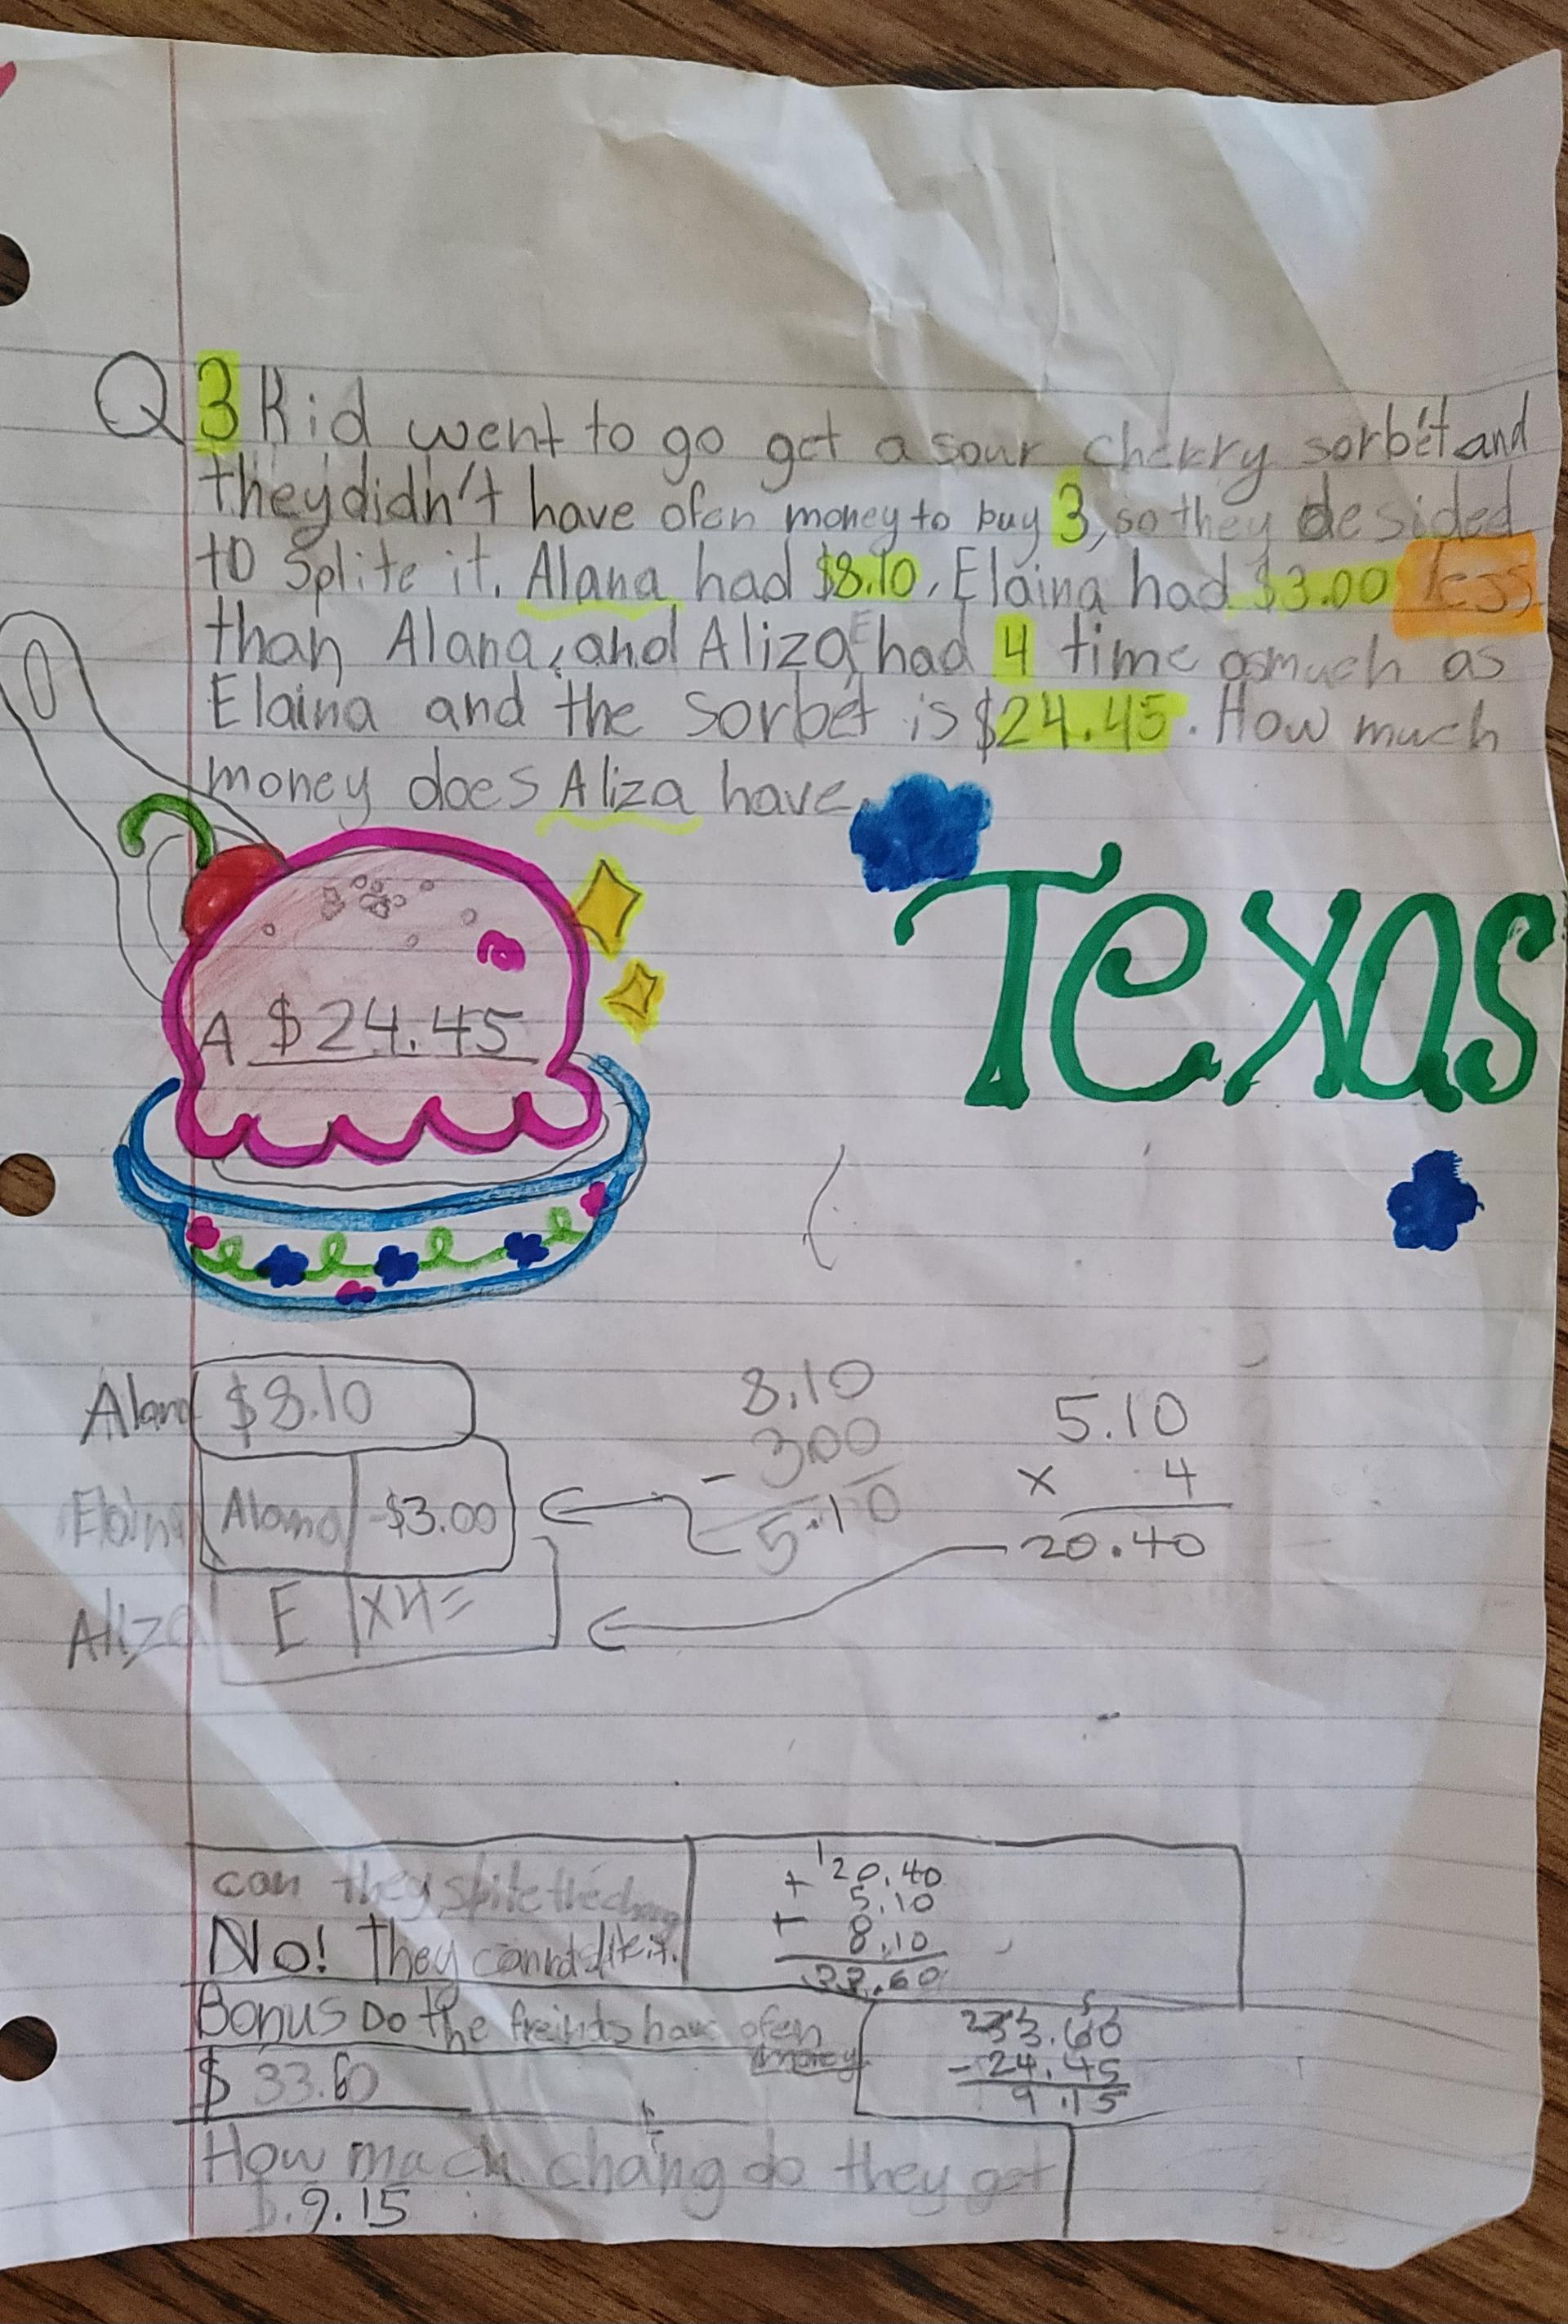 Q 3 Kid went to go get a sour cherry sorbét and
they didn't have ofen money to buy 3, so they desided
to Splite it. Alana had $8.10, Elaina had $3.00 less
than Alana, and Aliza had 4 time asmuch as
Elaina and the sorbét is $24.45. How much
money does Aliza have.
Texas
A $24.45
Alana $8.10
Elaina Alana -$3.00
Aliza E x4=
8.10
- 3.00
5.10
5.10
x 4
20.40
can they splite the
No! They
1
+ 20.40
5.10
+ 8.10
33.60
Bonus Do the freinds have ofen
money
$ 33.60
33.60
- 24.45
9.15
How much chang do they get
$.9.15